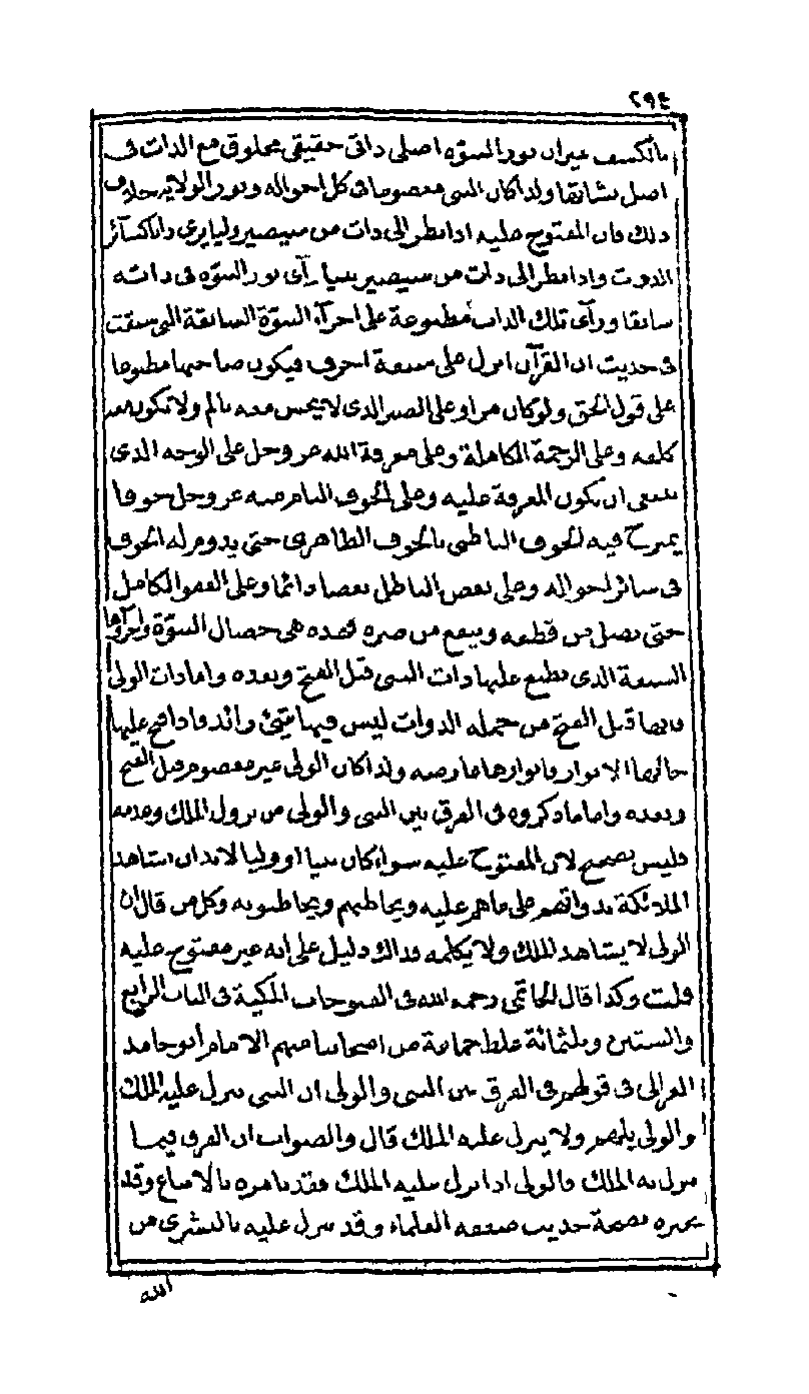 ٢٩٤
بالكسب غير ان نور النبوة اصلي ذاتي حقيقي مخلوق مع الذات في
اصل نشاتها ولذا كان النبي معصوما في كل احواله ونور الولاية خلاف
ذلك فان المفتوح عليه اذا نظر الى ذات من سيصير وليا يرى ذاتا كسائر
الذوات واذا نظر الى ذات من سيصير نبيا رآى نور النبوة في ذاته
سابقا ورآى تلك الذات مطبوعة على اجزآء النبوة السابقة التي سبقت
في حديث ان القرآن انزل على سبعة احرف فيكون صاحبها مطبوعا
على قول الحق ولو كان مرا وعلى الصبر الذي لا يحس معه بالم ولا تكون معه
كلفه وعلى الرحمة الكاملة وعلى معرفة الله عز وجل على الوجه الذي
ينبغي ان تكون المعرفة عليه وعلى الخوف التام منه عز وجل خوفا
يمتزج فيه الخوف الباطني بالخوف الظاهري حتى يدوم له الخوف
في سائر احواله وعلى بغض الباطل بغضا دائما وعلى العفو الكامل
حتى يصل من قطعه وينفع من ضره فهذه هي خصال النبوة واجزآؤها
السبعة الذي تطبع عليها ذات النبي قبل الفتح وبعده واما ذات الولي
فانها قبل الفتح من جمله الذوات ليس فيها شئ زائد فاذا فتح عليها
جائتها الانوار فانوارها عارضه ولذا كان الولي غير معصوم قبل الفتح
وبعده واما ما ذكروه في الفرق بين النبي والولي من نزول الملك وعدمه
فليس بصحيح لان المفتوح عليه سواء كان نبيا او وليا لا بد ان يشاهد
الملائكة بذواتهم على ما هم عليه ويخاطبهم ويخاطبونه وكل من قال ان
الولي لا يشاهد الملك ولا يكلمه فذاك دليل على انه غير مفتوح عليه
قلت وكذا قال الحاتمي رحمه الله في الفتوحات المكية في الباب الرابع
والستين وثلثمائة غلط جماعة من اصحابنا منهم الامام ابو حامد
الغزالي في قولهم في الفرق بين النبي والولي ان النبي ينزل عليه الملك
والولي يلهم ولا ينزل عليه الملك قال والصواب ان الفرق فيما
ينزل به الملك فالولي اذا نزل عليه الملك فقد يامره بالاتباع وقد
يخبره بصحة حديث ضعفه العلماء وقد ينزل عليه بالبشرى من
الله